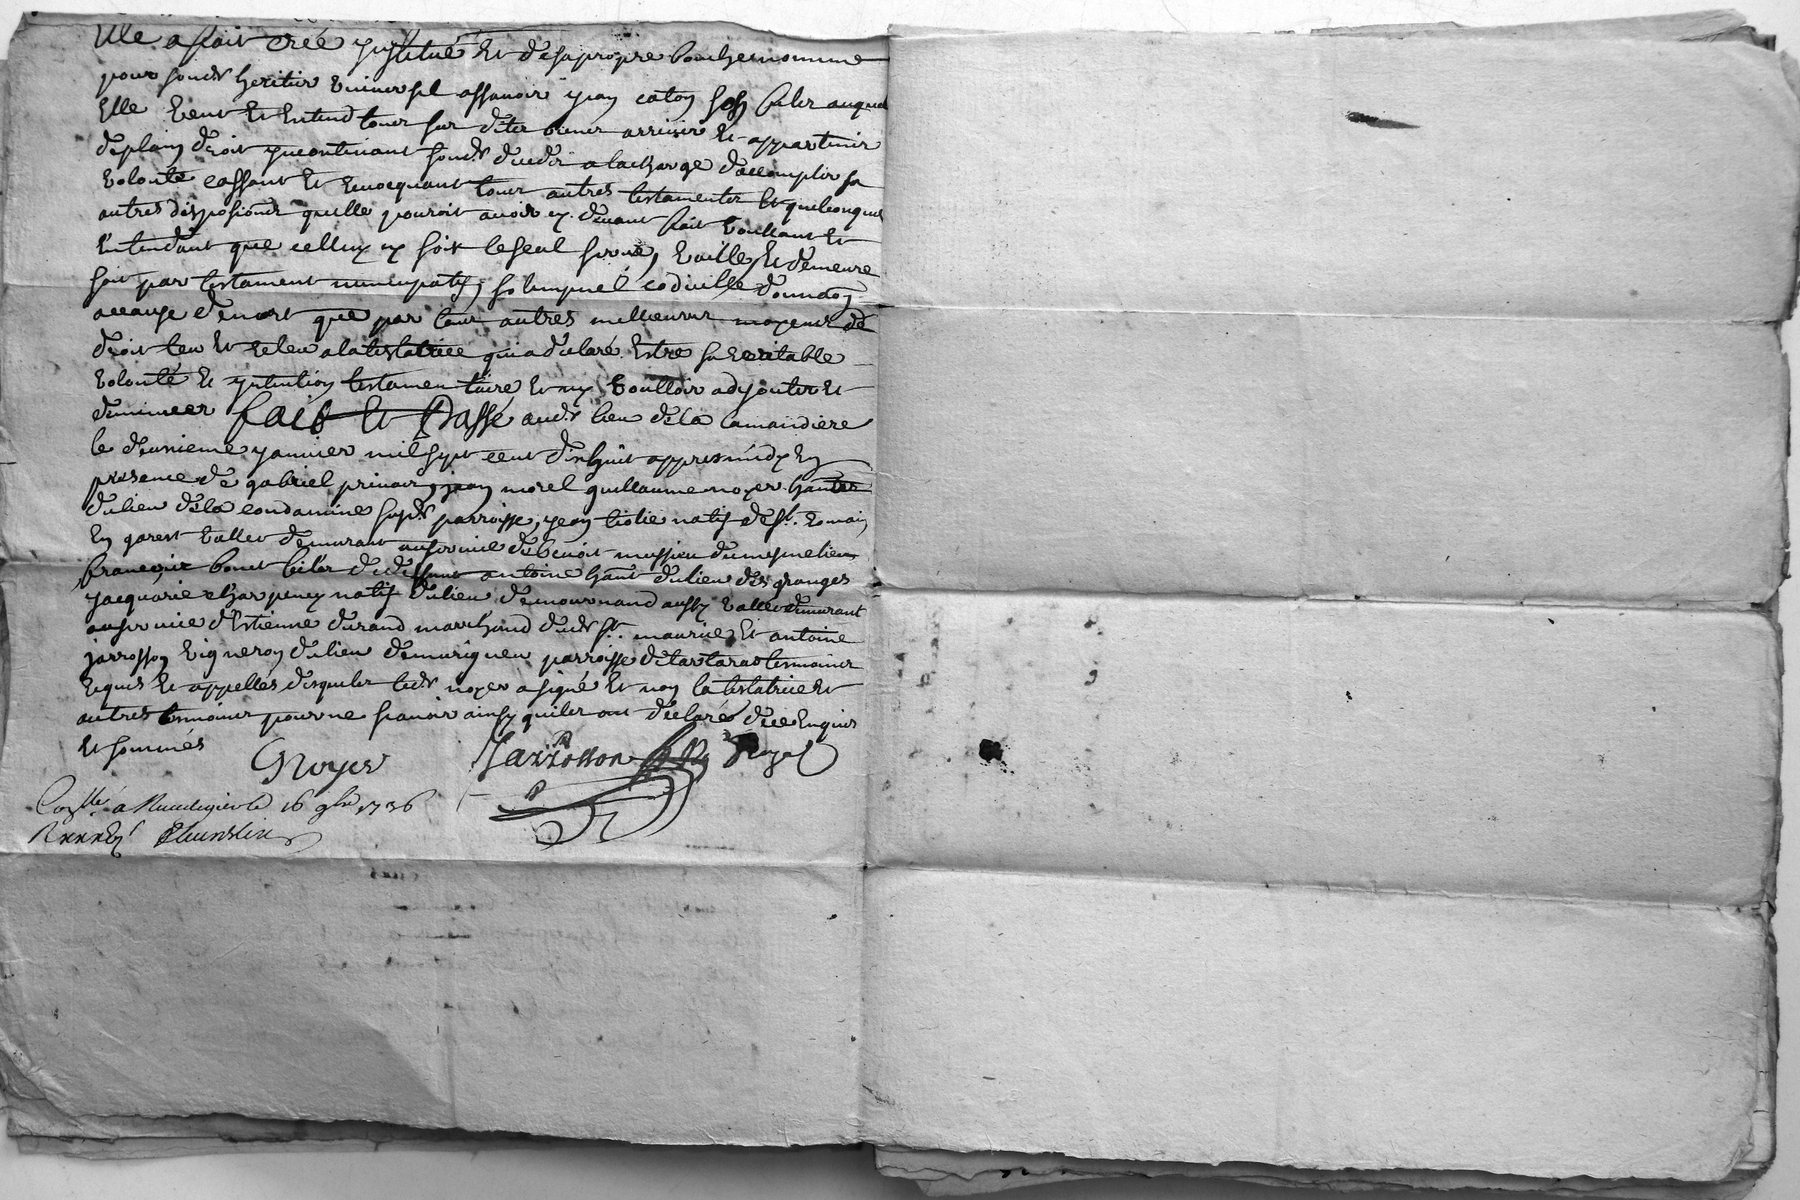 Elle a fait créé ynstitué Et de sa propre bouche nommé
pour sond. heritier Universel assavoir jean caton son filz auquel
Elle veut Et Entend tous sus dites biens arriver Et appartenir
de plain droit yncontinant sond. deceds a la charge d'accomplir sa
volonté cassant Et revocquant tous autres testamentes Et quelconques
autres disposions quelle pouroit avoir cy devant fait voullant Et
Entendant que celluy cy soit le seul servie, vaille, Et demeure
soit par testament nuncupatif, solempnel codicille donnaon
a cause de mort que par tous autres meilleurs moyens de
droit leu Et releu a la testatrice qui a declaré Estre sa veritable
volonté Et yntention testamentaire Et ny voulloir adjouter Et
diminuer fait Et Passé aud. lieu de la camandiere
le deuxieme janvier mil sept cent dixhuit appres midy En
presence de gabriel privat, jean morel guillaume noyer habitants
du lieu de la condamine susd. parroisse, jean tiolie natif de st. Romain
En garest vallet demurant au service de benoit messieu du mesme lieu
francois bonet filz de deffunt antoine habt du lieu des granges
jacquarie charpeney natif du lieu de mournand aussy vallet demurant
au service d'Estienne durand marchand dud. st. maurice Et antoine
jarrosson vigneron du lieu de marigneu parroisse de tartaras tesmoins
requis Et appellés desquels led. noyer a signé Et non la testatrice Et
autres tesmoins pour ne scavoir ainsy quils ont declaré de ce Enquis
Et sommés
GNoyer Jarrosson Noyer
16 9bre 1736